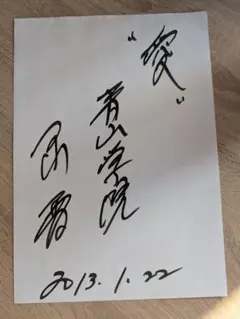 "愛"
青山学院
2013.1.22